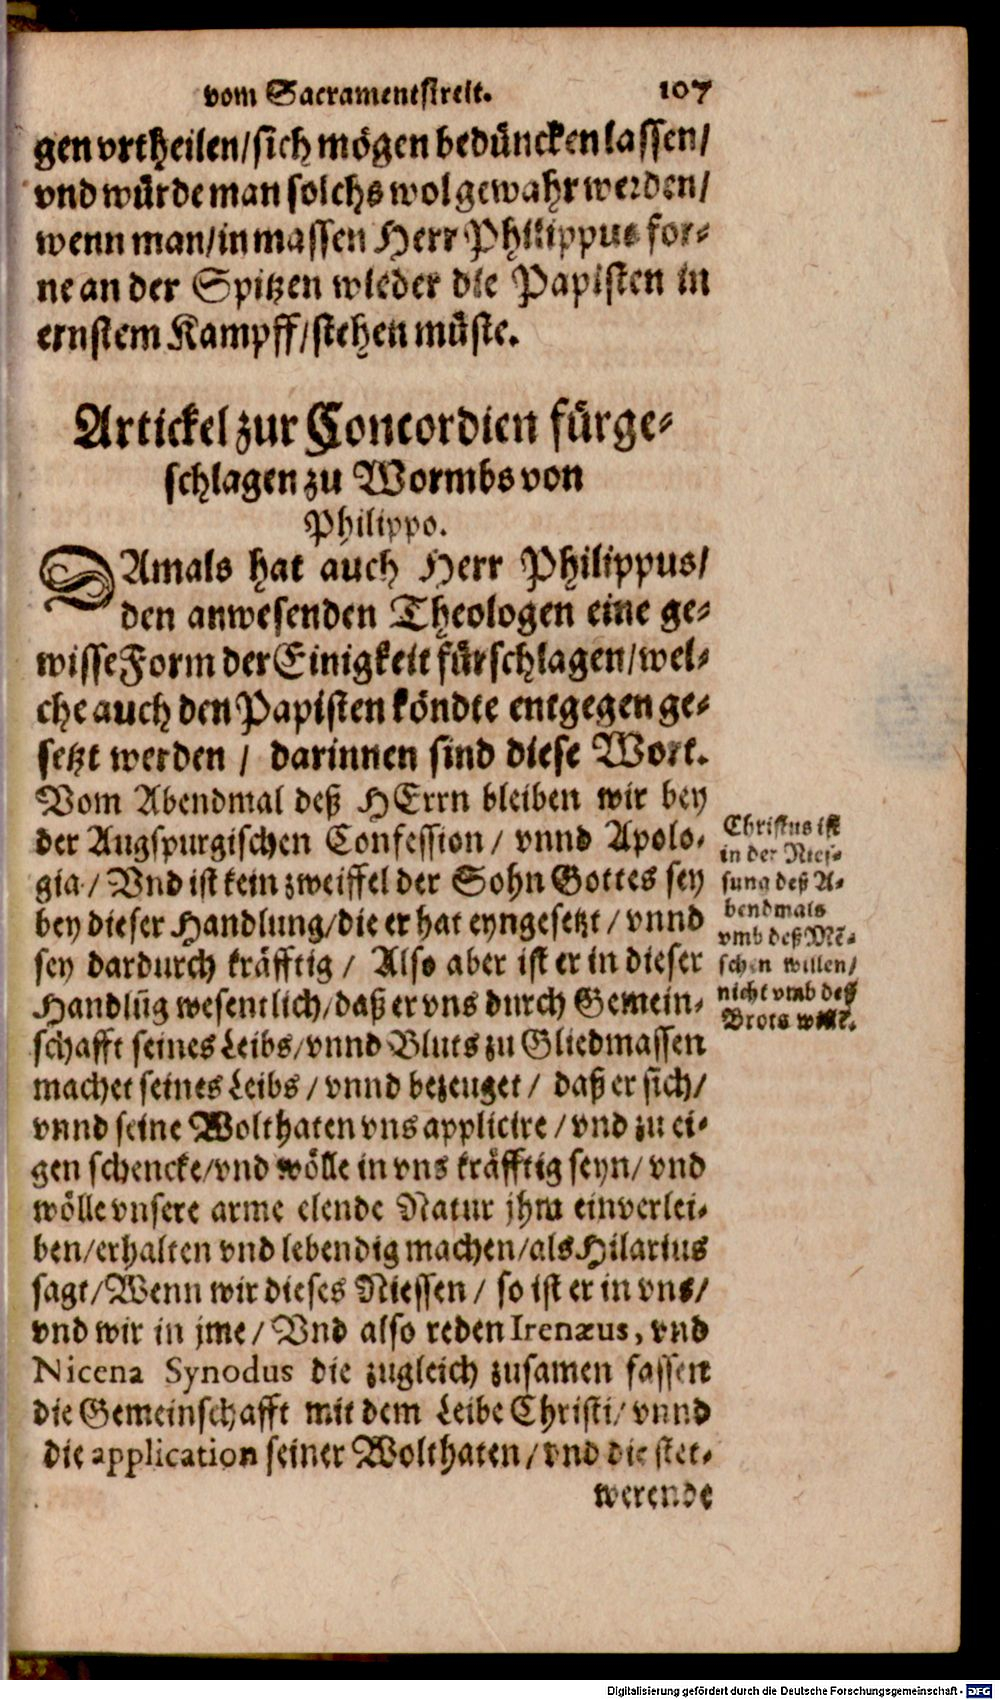 vom Sacramentstreit. 107
gen vrtheilen/sich mögen bedüncken lassen/
vnd würde man solchs wol gewahr werden/
wenn man/in massen Herr Philippus for-
ne an der Spitzen wieder die Papisten in
ernstem Kampff/stehen müste.
Artickel zur Concordien fürge-
schlagen zu Wormbs von
Philippo.
DAmals hat auch Herr Philippus/
den anwesenden Theologen eine ge-
wisse Form der Einigkeit fürschlagen/wel-
che auch den Papisten köndte entgegen ge-
setzt werden / darinnen sind diese Wort.
Vom Abendmal deß HErrn bleiben wir bey
der Augspurgischen Confession / vnnd Apolo-
gia / Vnd ist kein zweiffel der Sohn Gottes sey
bey dieser Handlung/die er hat eyngesetzt / vnnd
sey dardurch kräfftig / Also aber ist er in dieser
Handlūg wesentlich/daß er vns durch Gemein-
schafft seines Leibs/vnnd Bluts zu Gliedmassen
machet seines Leibs / vnnd bezeuget / daß er sich/
vnnd seine Wolthaten vns applicire / vnd zu ei-
gen schencke/vnd wölle in vns kräfftig seyn/ vnd
wölle vnsere arme elende Natur jhm einverlei-
ben/erhalten vnd lebendig machen/als Hilarius
sagt/Wenn wir dieses Niessen / so ist er in vns/
vnd wir in jme / Vnd also reden Irenæus, vnd
Nicena Synodus die zugleich zusamen fassen
die Gemeinschafft mit dem Leibe Christi/ vnnd
die application seiner Wolthaten / vnd die stet-
werende
Christus ist
in der Nies-
sung deß A-
bendmals
vmb deß Mē-
schen willen/
nicht vmb deß
Brots willē.
Digitalisierung gefördert durch die Deutsche Forschungsgemeinschaft - DFG